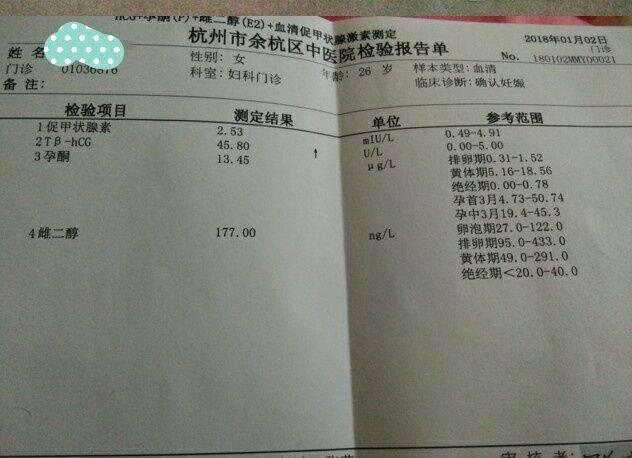 HCG+孕酮(P)+雌二醇(E2)+血清促甲状腺激素测定
杭州市余杭区中医院检验报告单
2018年01月02日
门诊
姓名
性别: 女
No. 180102MMY00021
门诊 01036876
科室: 妇科门诊
年龄: 26 岁
样本类型: 血清
备注:
临床诊断: 确认妊娠
检验项目 测定结果 单位 参考范围
1促甲状腺素 2.53 mIU/L 0.49-4.91
2Tβ-hCG 45.80 ↑ U/L 0.00-5.00
3孕酮 13.45 μg/L 排卵期0.31-1.52
黄体期5.16-18.56
绝经期0.00-0.78
孕首3月4.73-50.74
孕中3月19.4-45.3
4雌二醇 177.00 ng/L 卵泡期27.0-122.0
排卵期95.0-433.0
黄体期49.0-291.0
绝经期<20.0-40.0
审核者: